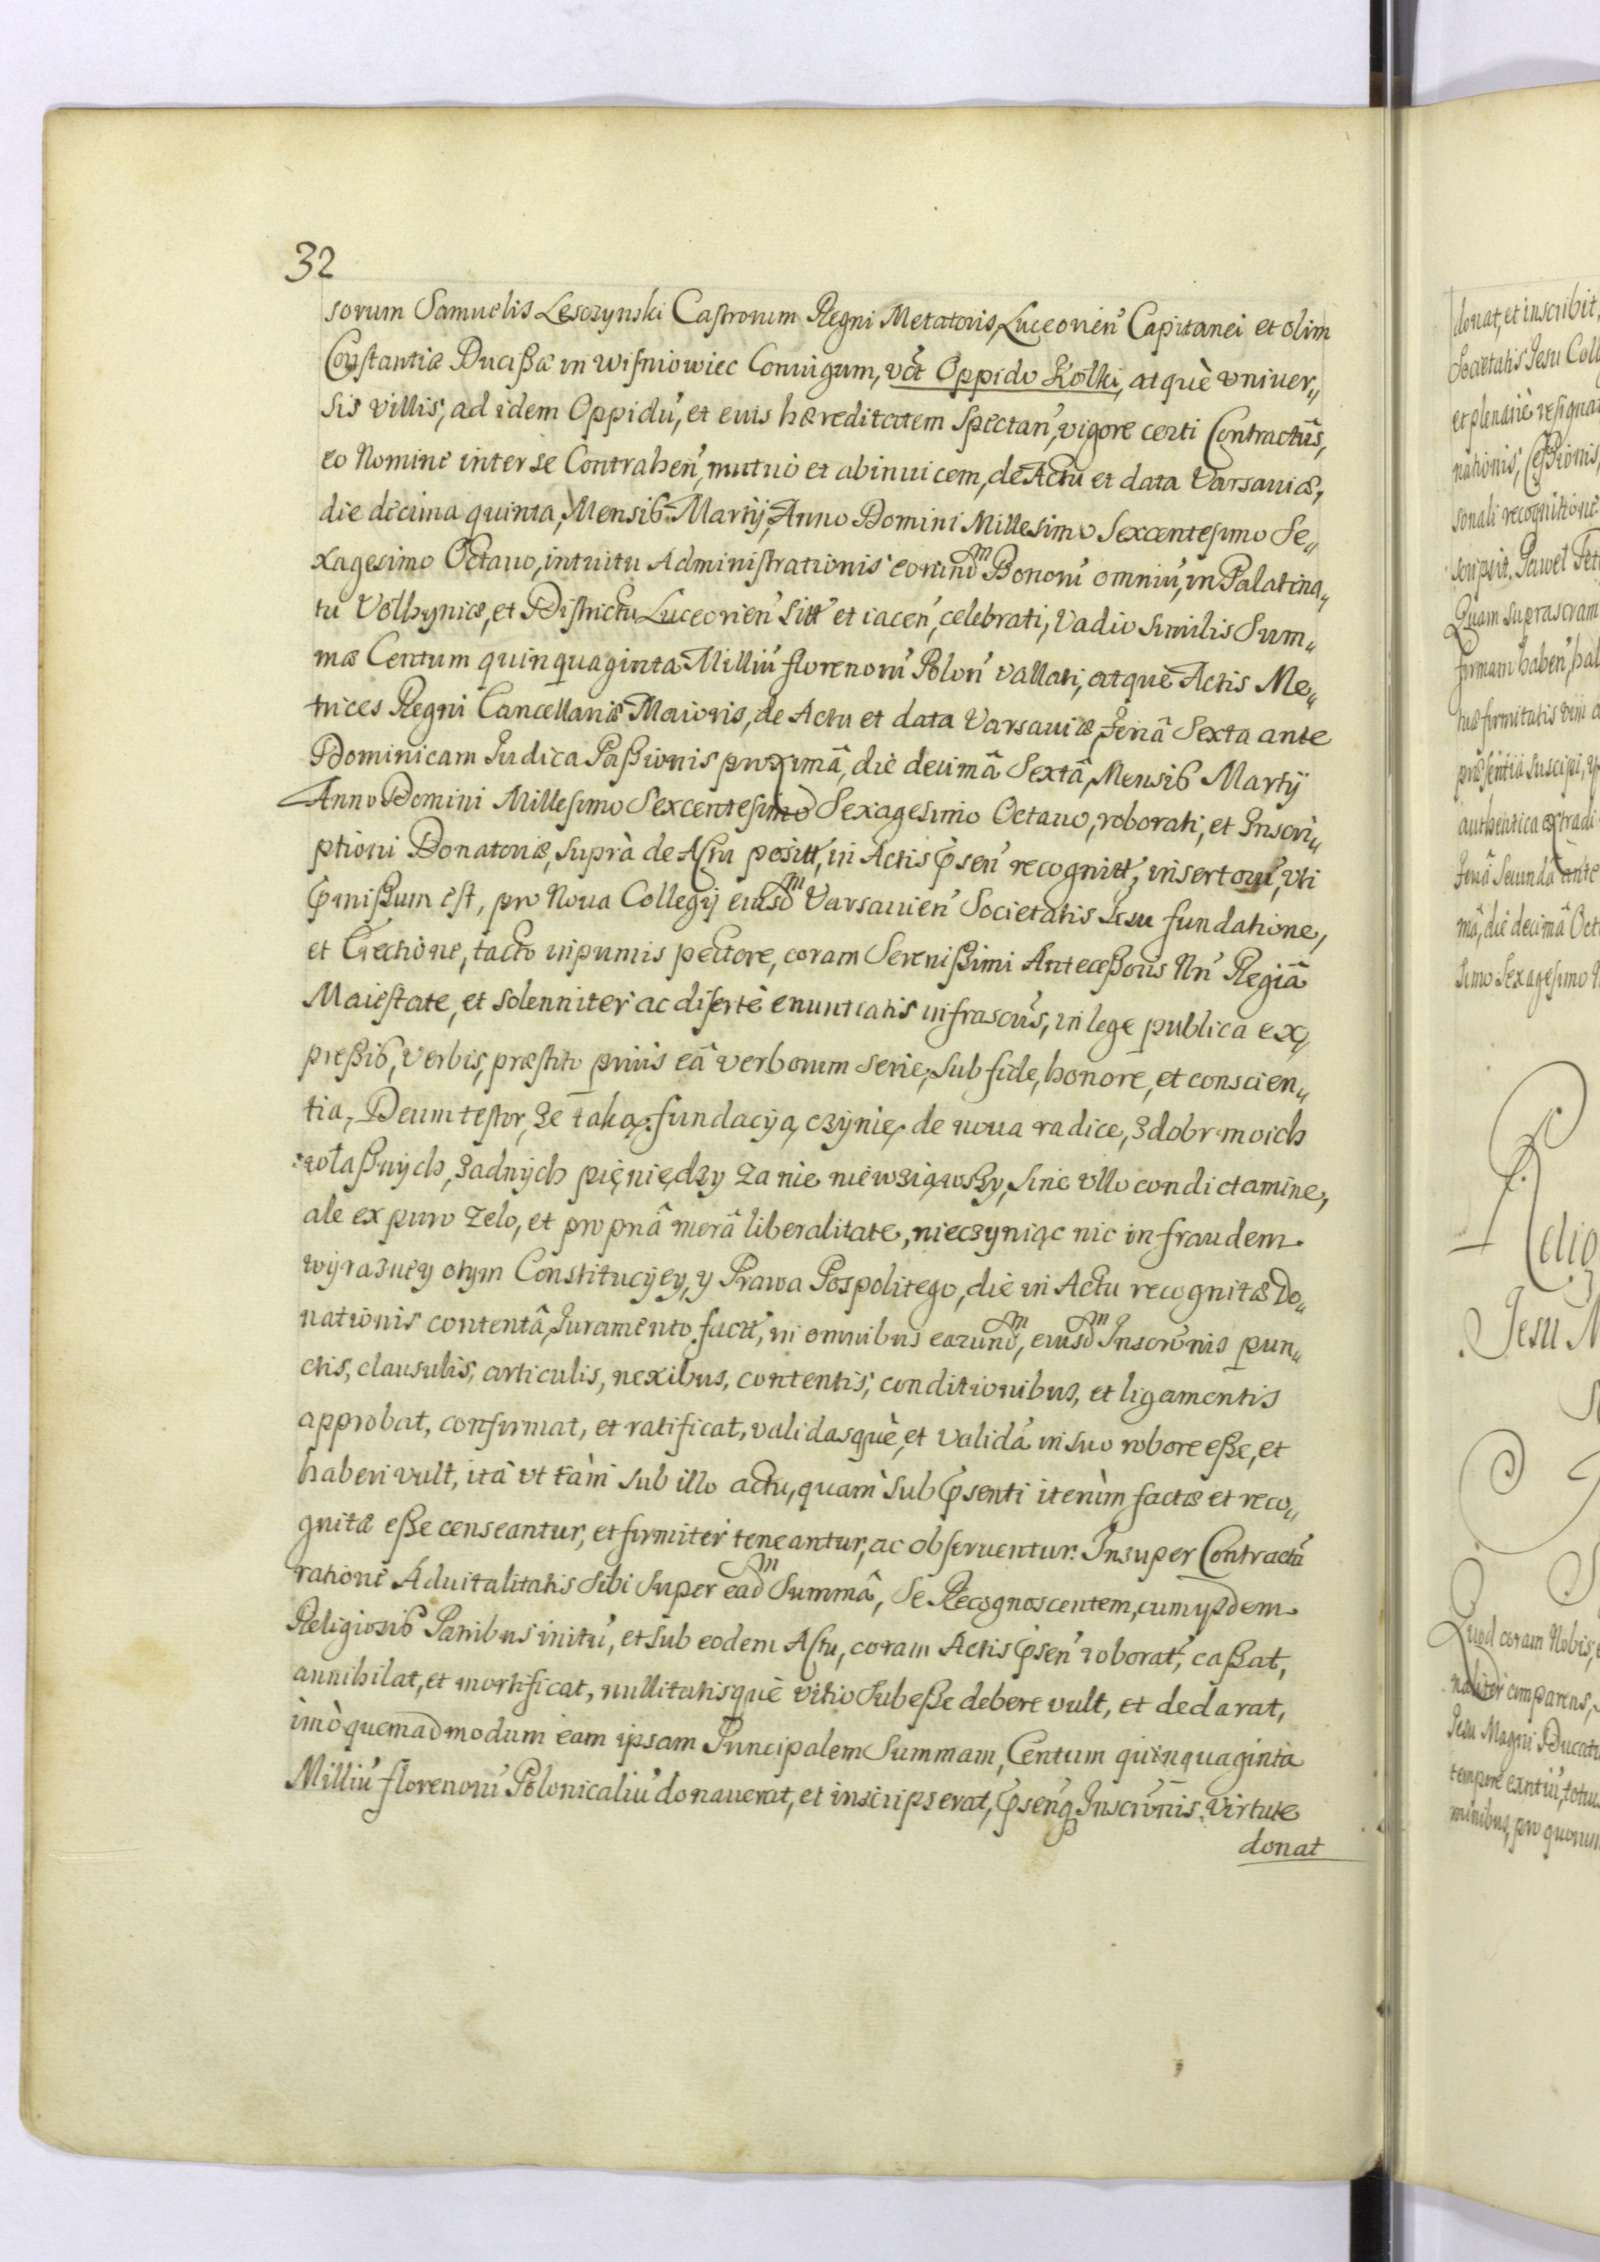 32
sorum Samuelis Lesczynski Castrorum Regni Metatoris, Luceorien̄ Capitanei et olim
Constantiæ Ducißæ in Wisniowiec Coniugum, vc̃t Oppido Kolki, atquè vniuer„
sis villis, ad idem Oppidū, et euis hæreditatem spectan̄, vigore certi Contractūs,
eo Nomine inter se Contrahen̄, mutuò et abinuicem, de Actu et data Varsauiæ,
die decima quinta, Mensib. Martij, Anno Domini Millesimo Sexcentesimo Se„
xagesimo Octauo, intuitu Administrationis eorund͞m Bonorū omniū, in Palatina„
tu Volhyniæ, et Districtu Luceorien̄ sitt̄ et iacen̄, celebrati, Vadio similis Sum„
mæ Centum quinquaginta Milliū florenorū Polon̄ vallati, atquè Actis Me„
trices Regni Cancellariæ Maioris, de Actu et data Varsauiæ, Feriâ Sexta ante
Dominicam Iudica Paßionis proximâ, die decimâ Sextâ, Mensib Martÿ
Anno Domini Millesimo Sexcentesimo Sexagesimo Octauo, roborati, et Inscri„
ptioni Donatoriæ, suprà de Actu positt̄, in Actis p̃sen̄ recognitt̄, insertorū, vti
p̃mißum est, pro Noua Collegij eiusd͞m Varsauien̄ Societatis Iesu fundatione,
et Erectione, tacto inprimis pectore, coram Serenißimi Anteceßoris Nrī Regiâ
Maiestate, et solenniter ac disertè enuntiatis infrascris̄, in lege publica ex„
preßib, verbis, præstito priùs eâ verborum serie, sub fide, honore, et conscien„
tia, Deum testor, że taką fundacyią czynię de noua radice, z dobr moich
własnych, żadnych pięniędzy za nie niewziąwszy, sine vllo condictamine,
ale ex puro zelo, et propriâ merâ liberalitate, nieczyniąc nic in fraudem
wyrazney otym Constitucyey, y Prawa Pospolitego, die in Actu recognitæ Do„
nationis contentâ, Iuramento facit̄, in omnibus earund͞m, eiusd͞m Inscrōnis pun„
ctis, clausulis, articulis, nexibus, contentis, conditionibus, et ligamentis
approbat, confirmat, et ratificat, validasquè, et validā in suo robore eße, et
haberi vult, itâ vt tàm sub illo actu, quam sub p̃senti iterùm factæ et reco„
gnitæ eße censeantur, et firmiter teneantur, ac obseruentur. Insuper Contractū
ratione Aduitalitatis sibi super ead͞m Summâ, se Recognoscentem, cum ijsdem
Religiosib Patribus initū, et sub eodem Actu, coram Actis p̃sen̄ roborat̄, caßat,
annihilat, et mortificat, nullitatisquè vitio subeße debere vult, et declarat,
imò quemadmodum eam ipsam Principalem Summam, Centum quinquaginta
Milliū florenorū Polonicaliū donauerat, et inscripserat, p̃senq̨ Inscrōnis virtute
donat
donat, et inscribit,
Societatis Iesu Coll
et plenariè resignat
nationis, Ceßionis,
sonali recognitione
scripsit. Paweł Pet
Quam suprascriam
firmam haben̄, hab
p̃sentia suscipi, y
authentica extradi
Feriâ Secundâ ante
mâ, die decimâ Oct
simo Sexagesimo N
Relig
Iesu M
Quod coram Nobis,
naliter comparens,
Iesu Magni Ducatu
tempore exn̄tiū, totiu
minibus, pro quorum